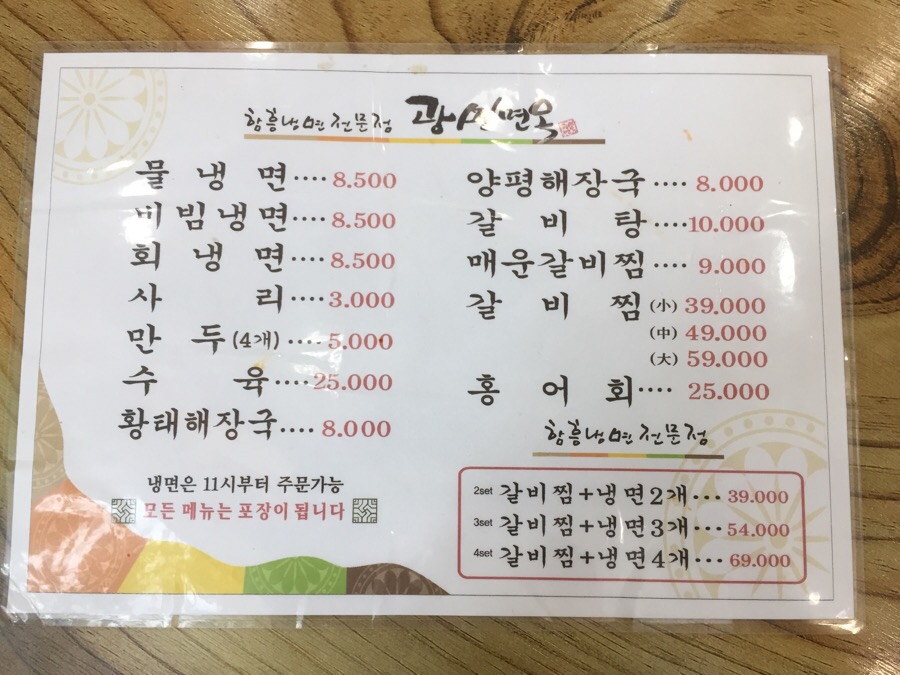 함흥냉면전문점 광민면옥
물냉면····8.500
비빔냉면····8.500
회냉면····8.500
사리····3.000
만두(4개)····5.000
수육····25.000
황태해장국····8.000
냉면은 11시부터 주문가능
모든 메뉴는 포장이 됩니다
양평해장국····8.000
갈비탕····10.000
매운갈비찜····9.000
갈비찜(小)39.000
(中)49.000
(大)59.000
홍어회····25.000
함흥냉면전문점
2set 갈비찜+냉면2개···39.000
3set 갈비찜+냉면3개···54.000
4set 갈비찜+냉면4개···69.000